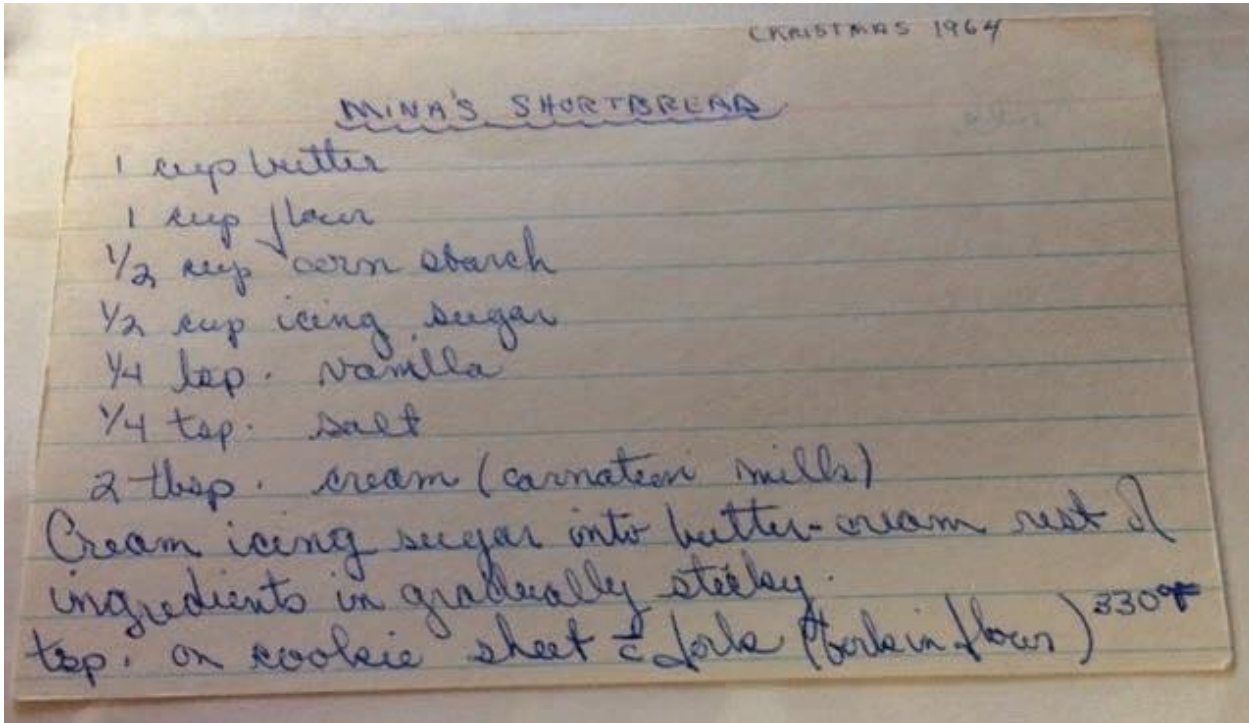 CHRISTMAS 1964
MINA'S SHORTBREAD
1 cup butter
1 cup flour
1/2 cup corn starch
1/2 cup icing sugar
1/4 tsp. vanilla
1/4 tsp. salt
2 tbsp. cream (carnation milk)
Cream icing sugar into butter - cream rest of
ingredients in gradually sticky.
tsp. on cookie sheet c̄ fork (fork in flour) 330°F